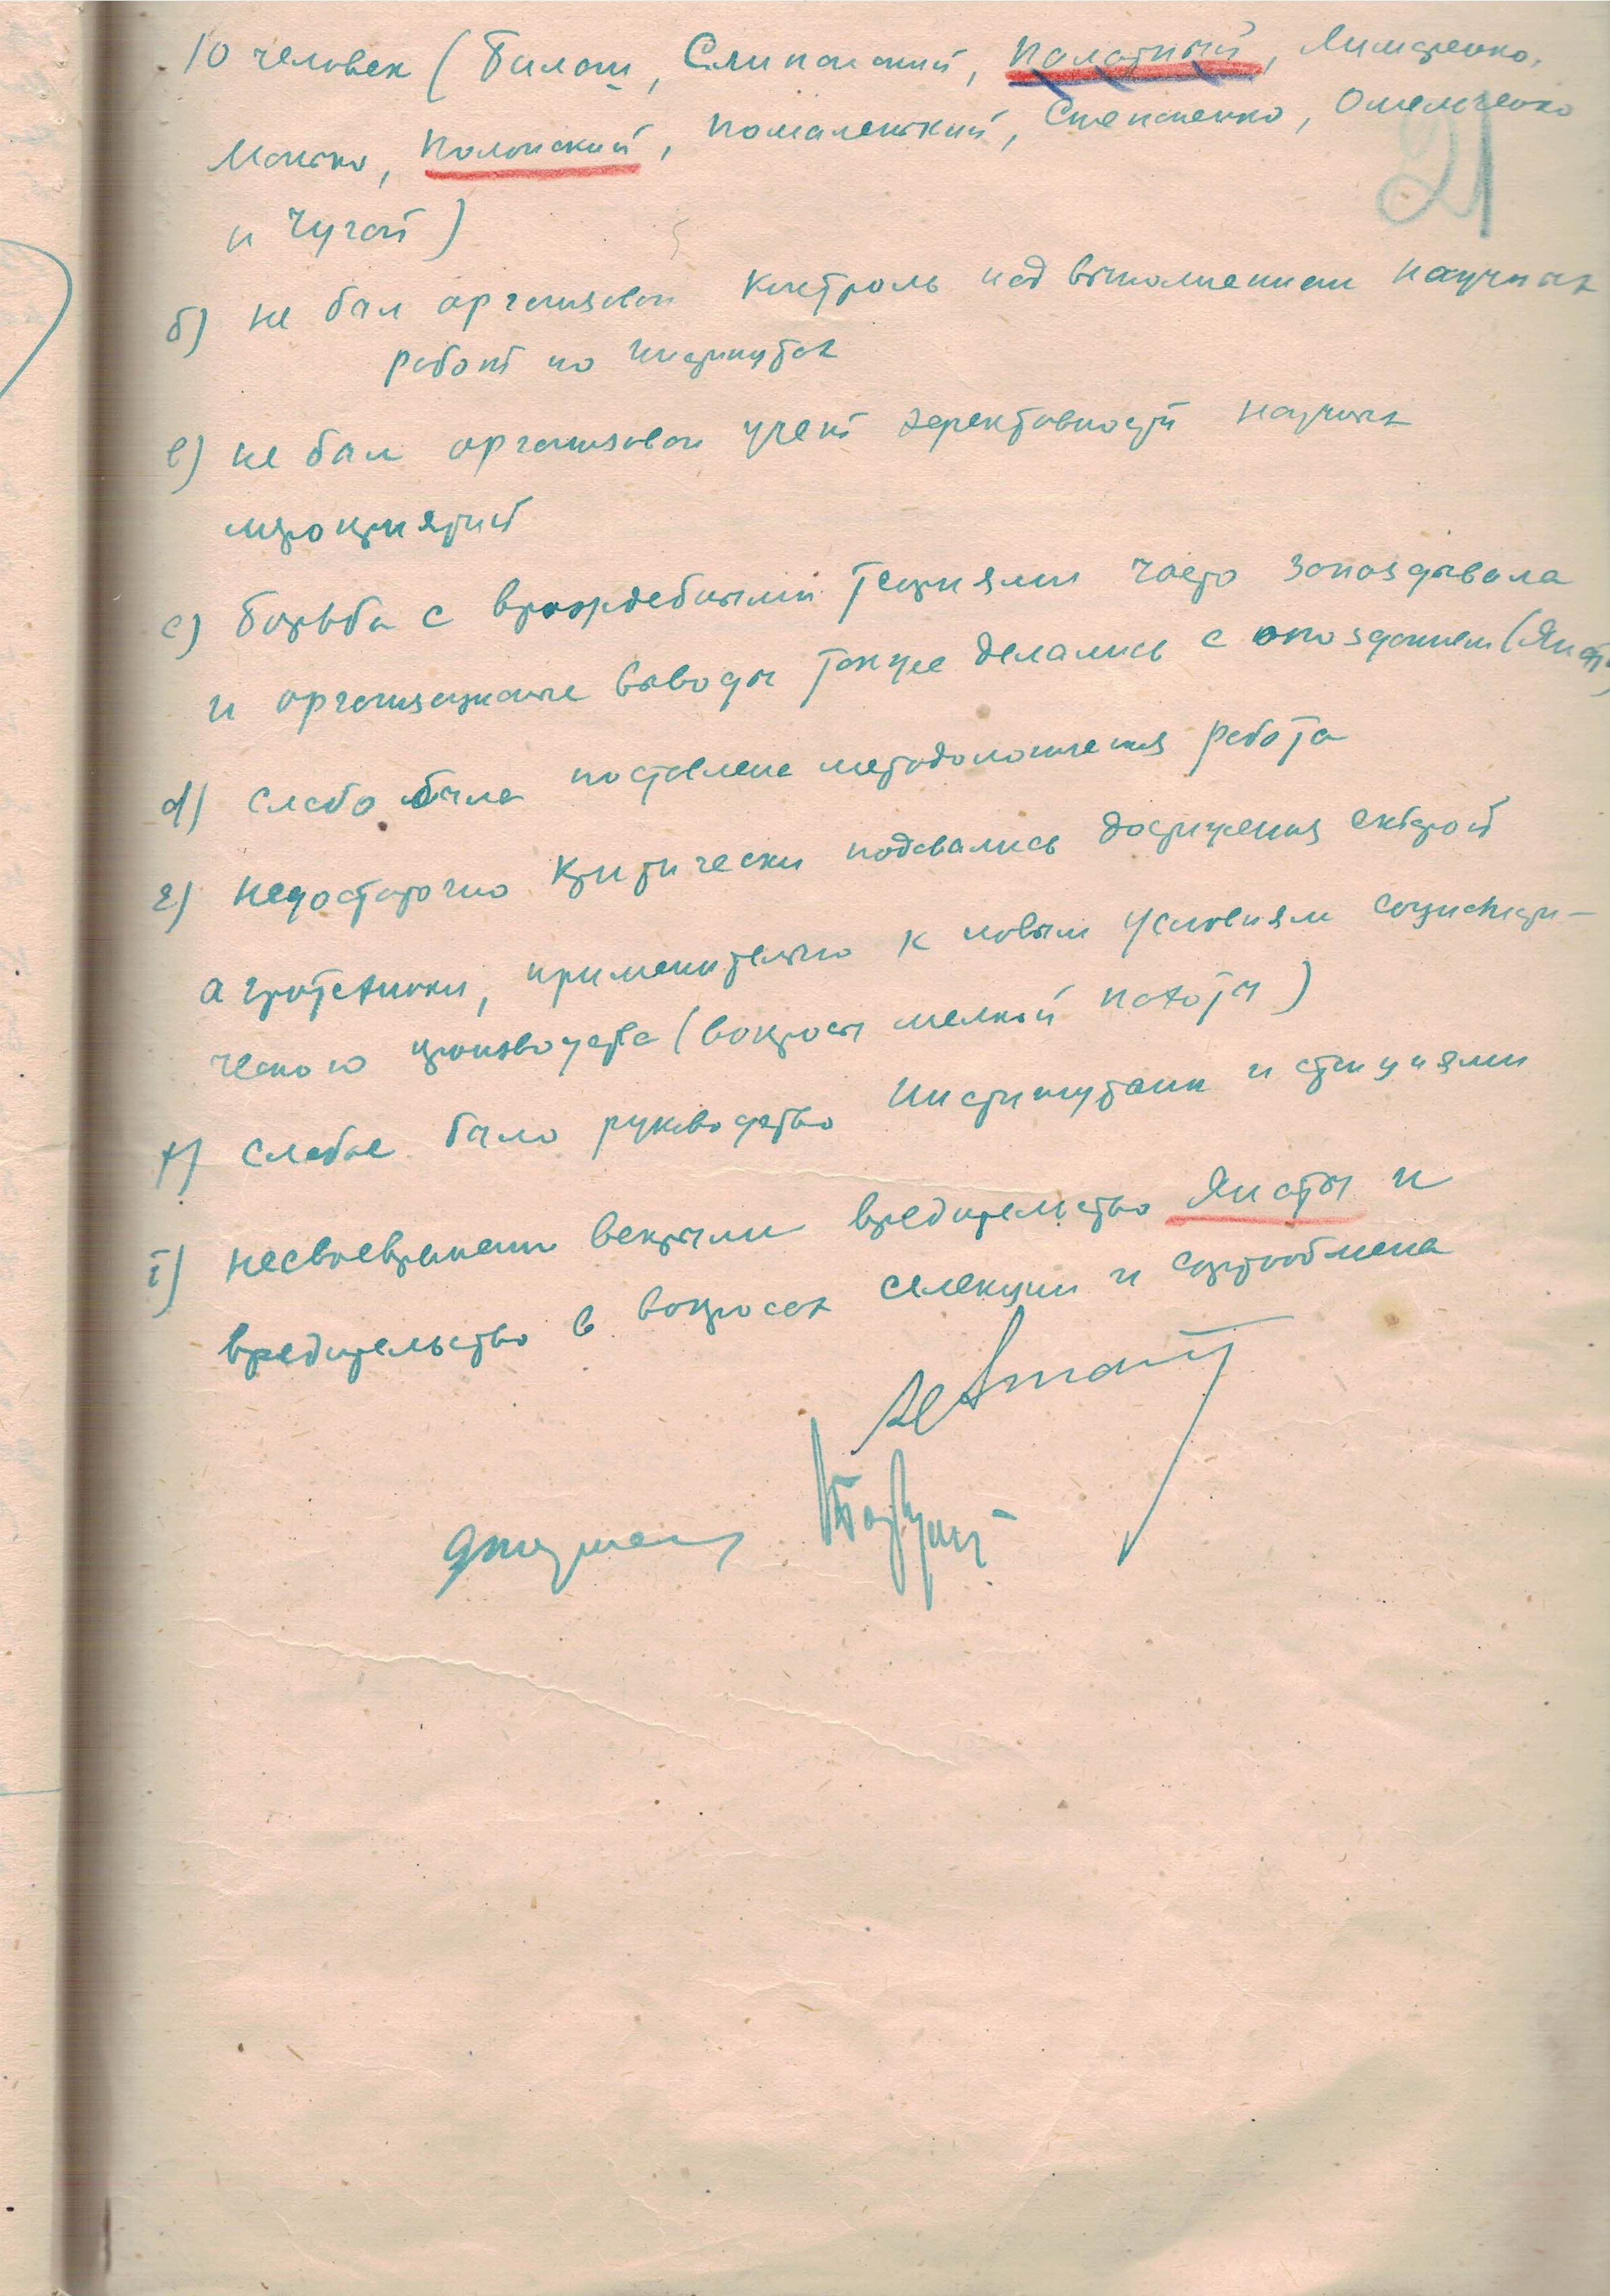 10 человек (Билаш, Слипанский, Полотный, Лимаренко,
Манько, Полонский, Помаленький, Степаненко, Омельченко
21
и Чугай)
б) не был организован контроль над выполнением научных
работ по институтах
в) не был организован учет эфективности научных
мероприятий
с) борьба с враждебными теориями часто запаздывала
и организационые выводы также делались с опозданием (Яната)
d) слабо была поставлена методологическая работа
е) недостаточно критически подавались достижения старой
агротехники, применительно к новым условиям социалисти-
ческого производства (вопросы мелкой пахоты)
f) слабое было руководство институтами и станциями
i) несвоевременно вскрыли вредительство Янаты и
вредительство в вопросах селекции и сортообмена